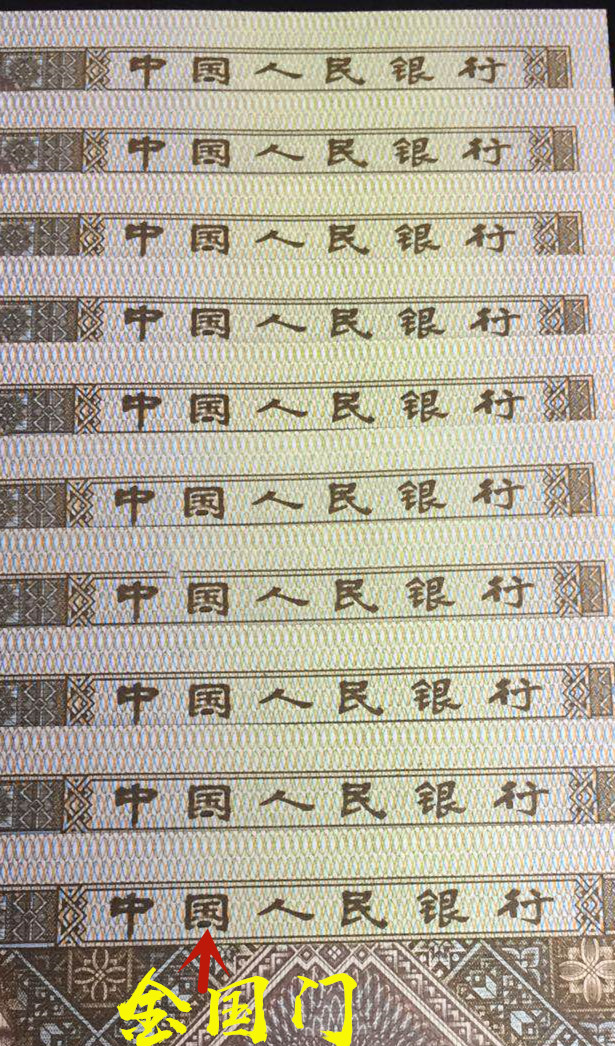 中国人民银行
中国人民银行
中国人民银行
中国人民银行
中国人民银行
中国人民银行
中国人民银行
中国人民银行
中国人民银行
中国人民银行
金国门